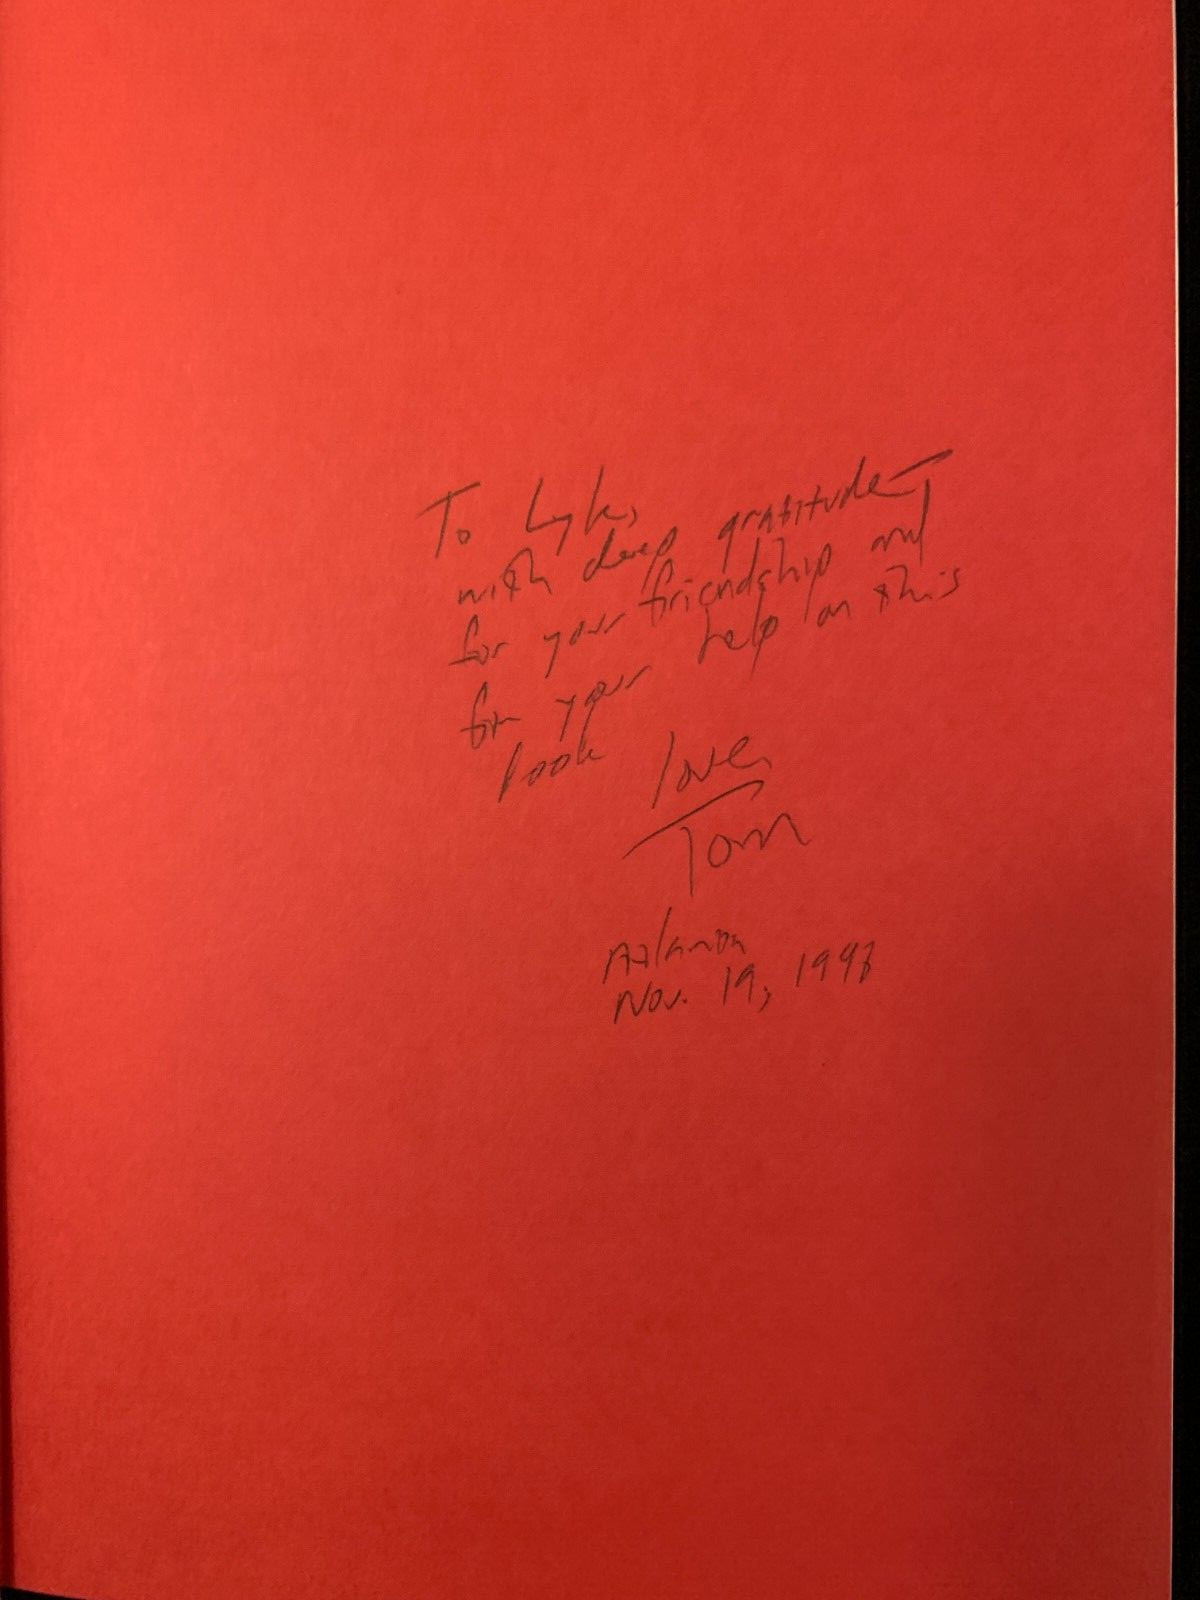 To Lyle,
with deep gratitude
for your friendship and
for your help on this
book
love,
Tom
Nov. 19, 1998